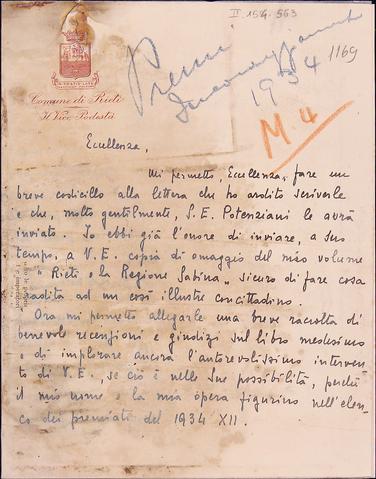 II 154-553
1169
Premi
Incoraggiament
1934
M. 4
Comune di Rieti
Il Vice Podestà
Eccellenza,
Mi permetto, Eccellenza, fare un
breve codicillo alla lettera che ho ardito scriverle
e che, molto gentilmente, S. E. Potenziani le avrà
inviato. Io ebbi già l'onore di inviare, a suo
tempo, a V. E. copia di omaggio del mio volume
"Rieti e la Regione Sabina" sicuro di fare cosa
gradita ad un così illustre concittadino.
Ora mi permetto allegarle una breve raccolta di
benevole recensioni e giudizi sul libro medesimo
e di implorare ancora l'autorevolissimo interven-
to di V. E., se ciò è nelle Sue possibilità, perché
il mio nome e la mia opera figurino nell'elen-
co dei premiati del 1934 XII.